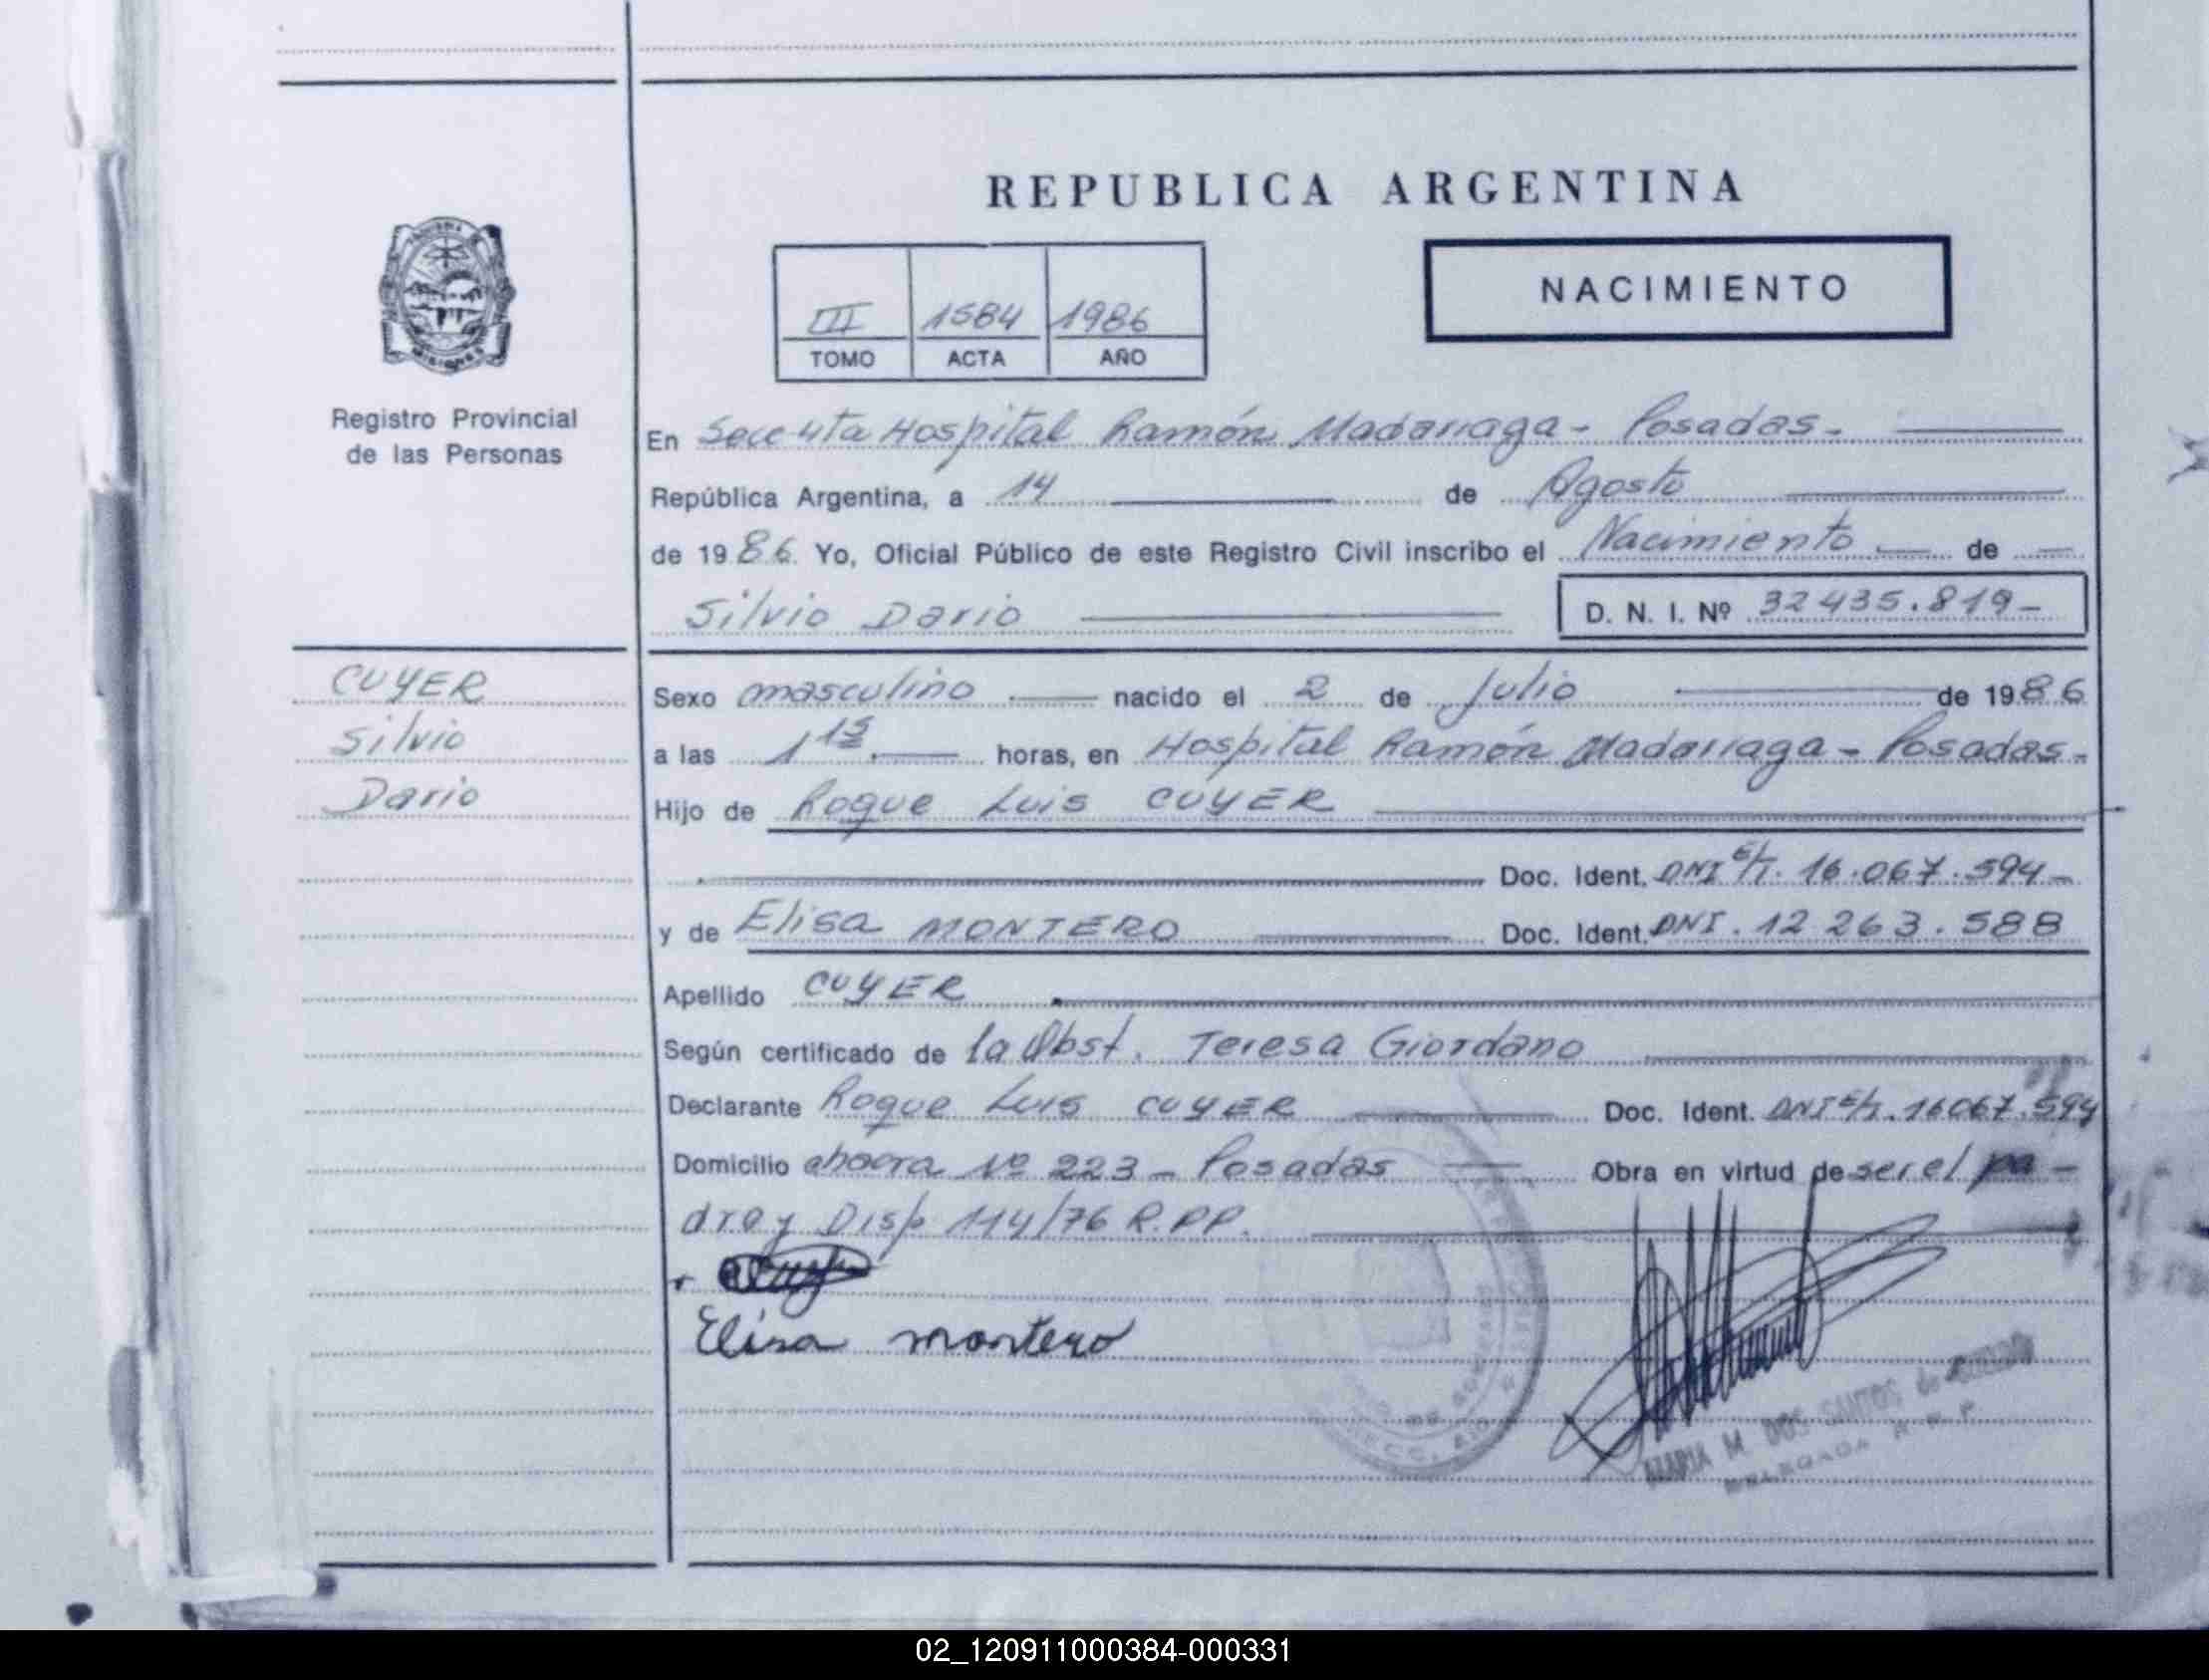 REPUBLICA ARGENTINA
NACIMIENTO
III 1584 1986
TOMO ACTA AÑO
MISIONES
Registro Provincial
de las Personas
En Secc 4ta Hospital Ramón Madariaga - Posadas.
República Argentina, a 14 de Agosto
de 1986. Yo, Oficial Público de este Registro Civil inscribo el Nacimiento de
Silvio Dario D. N. I. Nº 32435.819-
CUYER
Silvio
Dario
Sexo masculino nacido el 2 de Julio de 1986
a las 1 15 horas, en Hospital Ramón Madariaga - Posadas -
Hijo de Roque Luis CUYER
Doc. Ident. DNI E/T. 16.067.594-
y de Elisa MONTERO Doc. Ident. DNI. 12 263.588
Apellido CUYER
Según certificado de la Obst. Teresa Giordano
Declarante Roque Luis CUYER Doc. Ident. DNI E/T. 16067.594
Domicilio Nº 223 - Posadas Obra en virtud de ser el pa-
dre y Disp 114/76 R.PP.
Elisa montero
MARIA M. DOS SANTOS de
DELEGADA R.P.P.
02_120911000384-000331